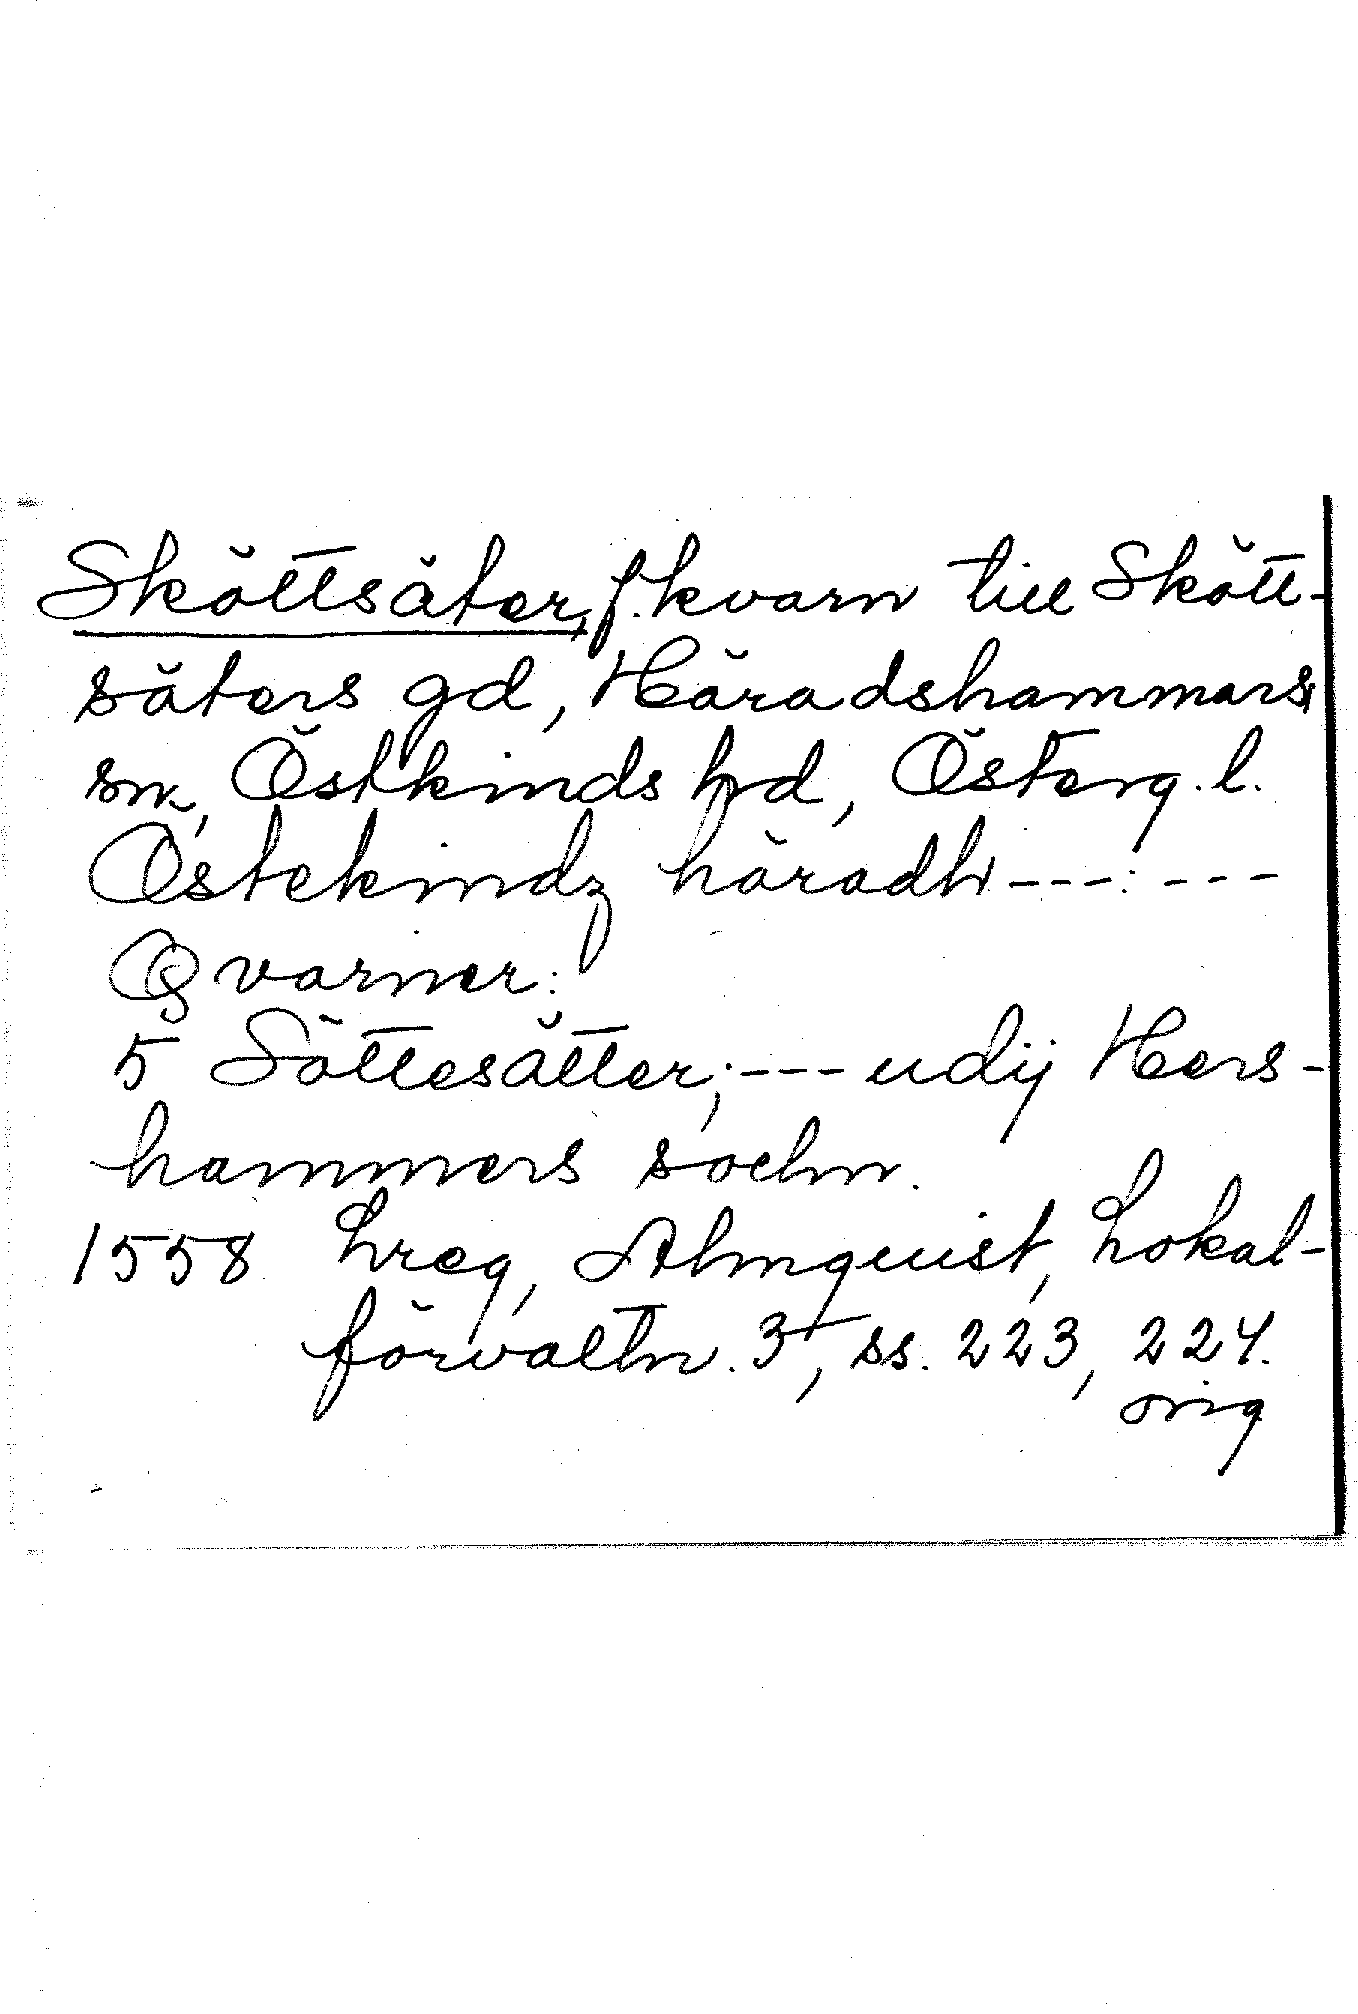 Sköttsäter, f. kvarn till Skött-
säters gd, Häradshammars
sn, Östkinds hd, Österg. l.
Östekindz häradh --- : ---
Qvarner:
5 Söttesätter; --- udij Hers-
hammers sochn.
1558 Lreg, Almquist, Lokal-
förvaltn. 3, ss. 223, 224.
orig